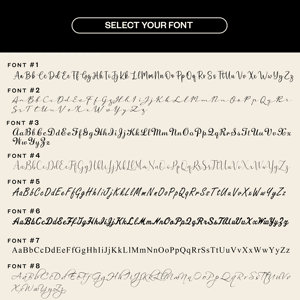 SELECT YOUR FONT
FONT #1
AaBbCcDdEeFfGgHhIiJjKkLlMmNnOoPpQqRrSsTtUuVvXxWwYyZz
FONT #2
AaBbCcDdEeFfGgHhIiJjKkLlMmNnOoPpQqRr
SsTtUuVvXxWwYyZz
FONT #3
AaBbCcDdEeFfGgHhIiJjKkLlMmNnOoPpQqRrSsTtUuVvXx
WwYyZz
FONT #4
AaBbCcDdEeFfGgHhIiJjKkLlMmNnOoPpQqRrSsTtUuVvXxWwYyZz
FONT #5
AaBbCcDdEeFfGgHhIiJjKkLlMmNnOoPpQqRrSsTtUuVvXxWwYyZz
FONT #6
AaBbCcDdEeFfGgHhIiJjKkLlMmNnOoPpQqRrSsTtUuVvXxWwYyZz
FONT #7
AaBbCcDdEeFfGgHhIiJjKkLlMmNnOoPpQqRrSsTtUuVvXxWwYyZz
FONT #8
AaBbCcDdEeFfGgHhIiJjKkLlMmNnOoPpQqRrSsTtUuVv
XxWwYyZz